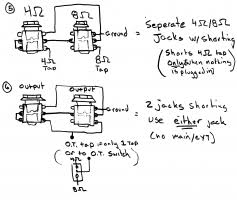 5
4Ω
8Ω
Ground
4Ω
Tap
8Ω
Tap
= Seperate 4Ω/8Ω
Jacks w/shorting
(Shorts 4Ω tap
Only when nothing
is plugged in)
6
Output
Output
Ground
= 2 jacks shorting
use either jack
(no main/ext)
O.T. tap = only 1 tap
(or to O.T. Switch)
4Ω
8Ω